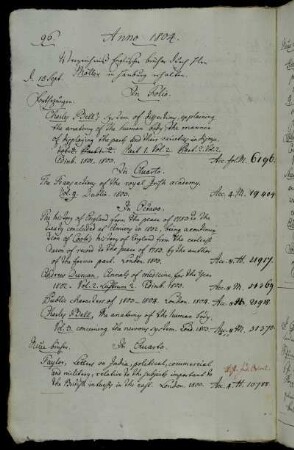 96
Anno 1804.
Verzeichniß Englischer Bücher durch Hr.
in Hamburg erhalten.
d. 12 Sept.
In Folio.
Fortsetzungen.
Charles Bell's System of dissections, explaining
the anatomy of the human body, the manner
of displaying the parts and their varieties in disea-
ses. Part. 2. Vol. 2. Part. 2. Vol. 2.
Edinb. 1801. 1800. Acc. fol. M. 6196.
In Quarto.
The Transactions of the royal Irish academy.
Vol. 9. Dublin 1803. Acc. 4. M. 19404
In Octavo.
The history of England from the peace of 1783 to the
treaty concluded at Amiens in 1802, being a continua-
tion of Coote's history of England from the earliest
dawn of record to the peace of 1783 by the author
of the former part. London 1803. Acc. 8. M. 21957
Andrew Duncan. Annals of medicine for the Year
1802. Vol. 2. Lustrum 2. Edinb. 1803.
Public characters of 1803-1804. London. 1804. Acc. 8. M.
Charles Bell, the anatomy of the human body,
Vol. 3. concerning the nervous system. Lond. 1803. Acc. 8. M.
In Quarto.
Taylor, Letters on India, political, commercial
and military, relative to the subjects important to
the British interests in the east. London 1800. Acc. 4. M.